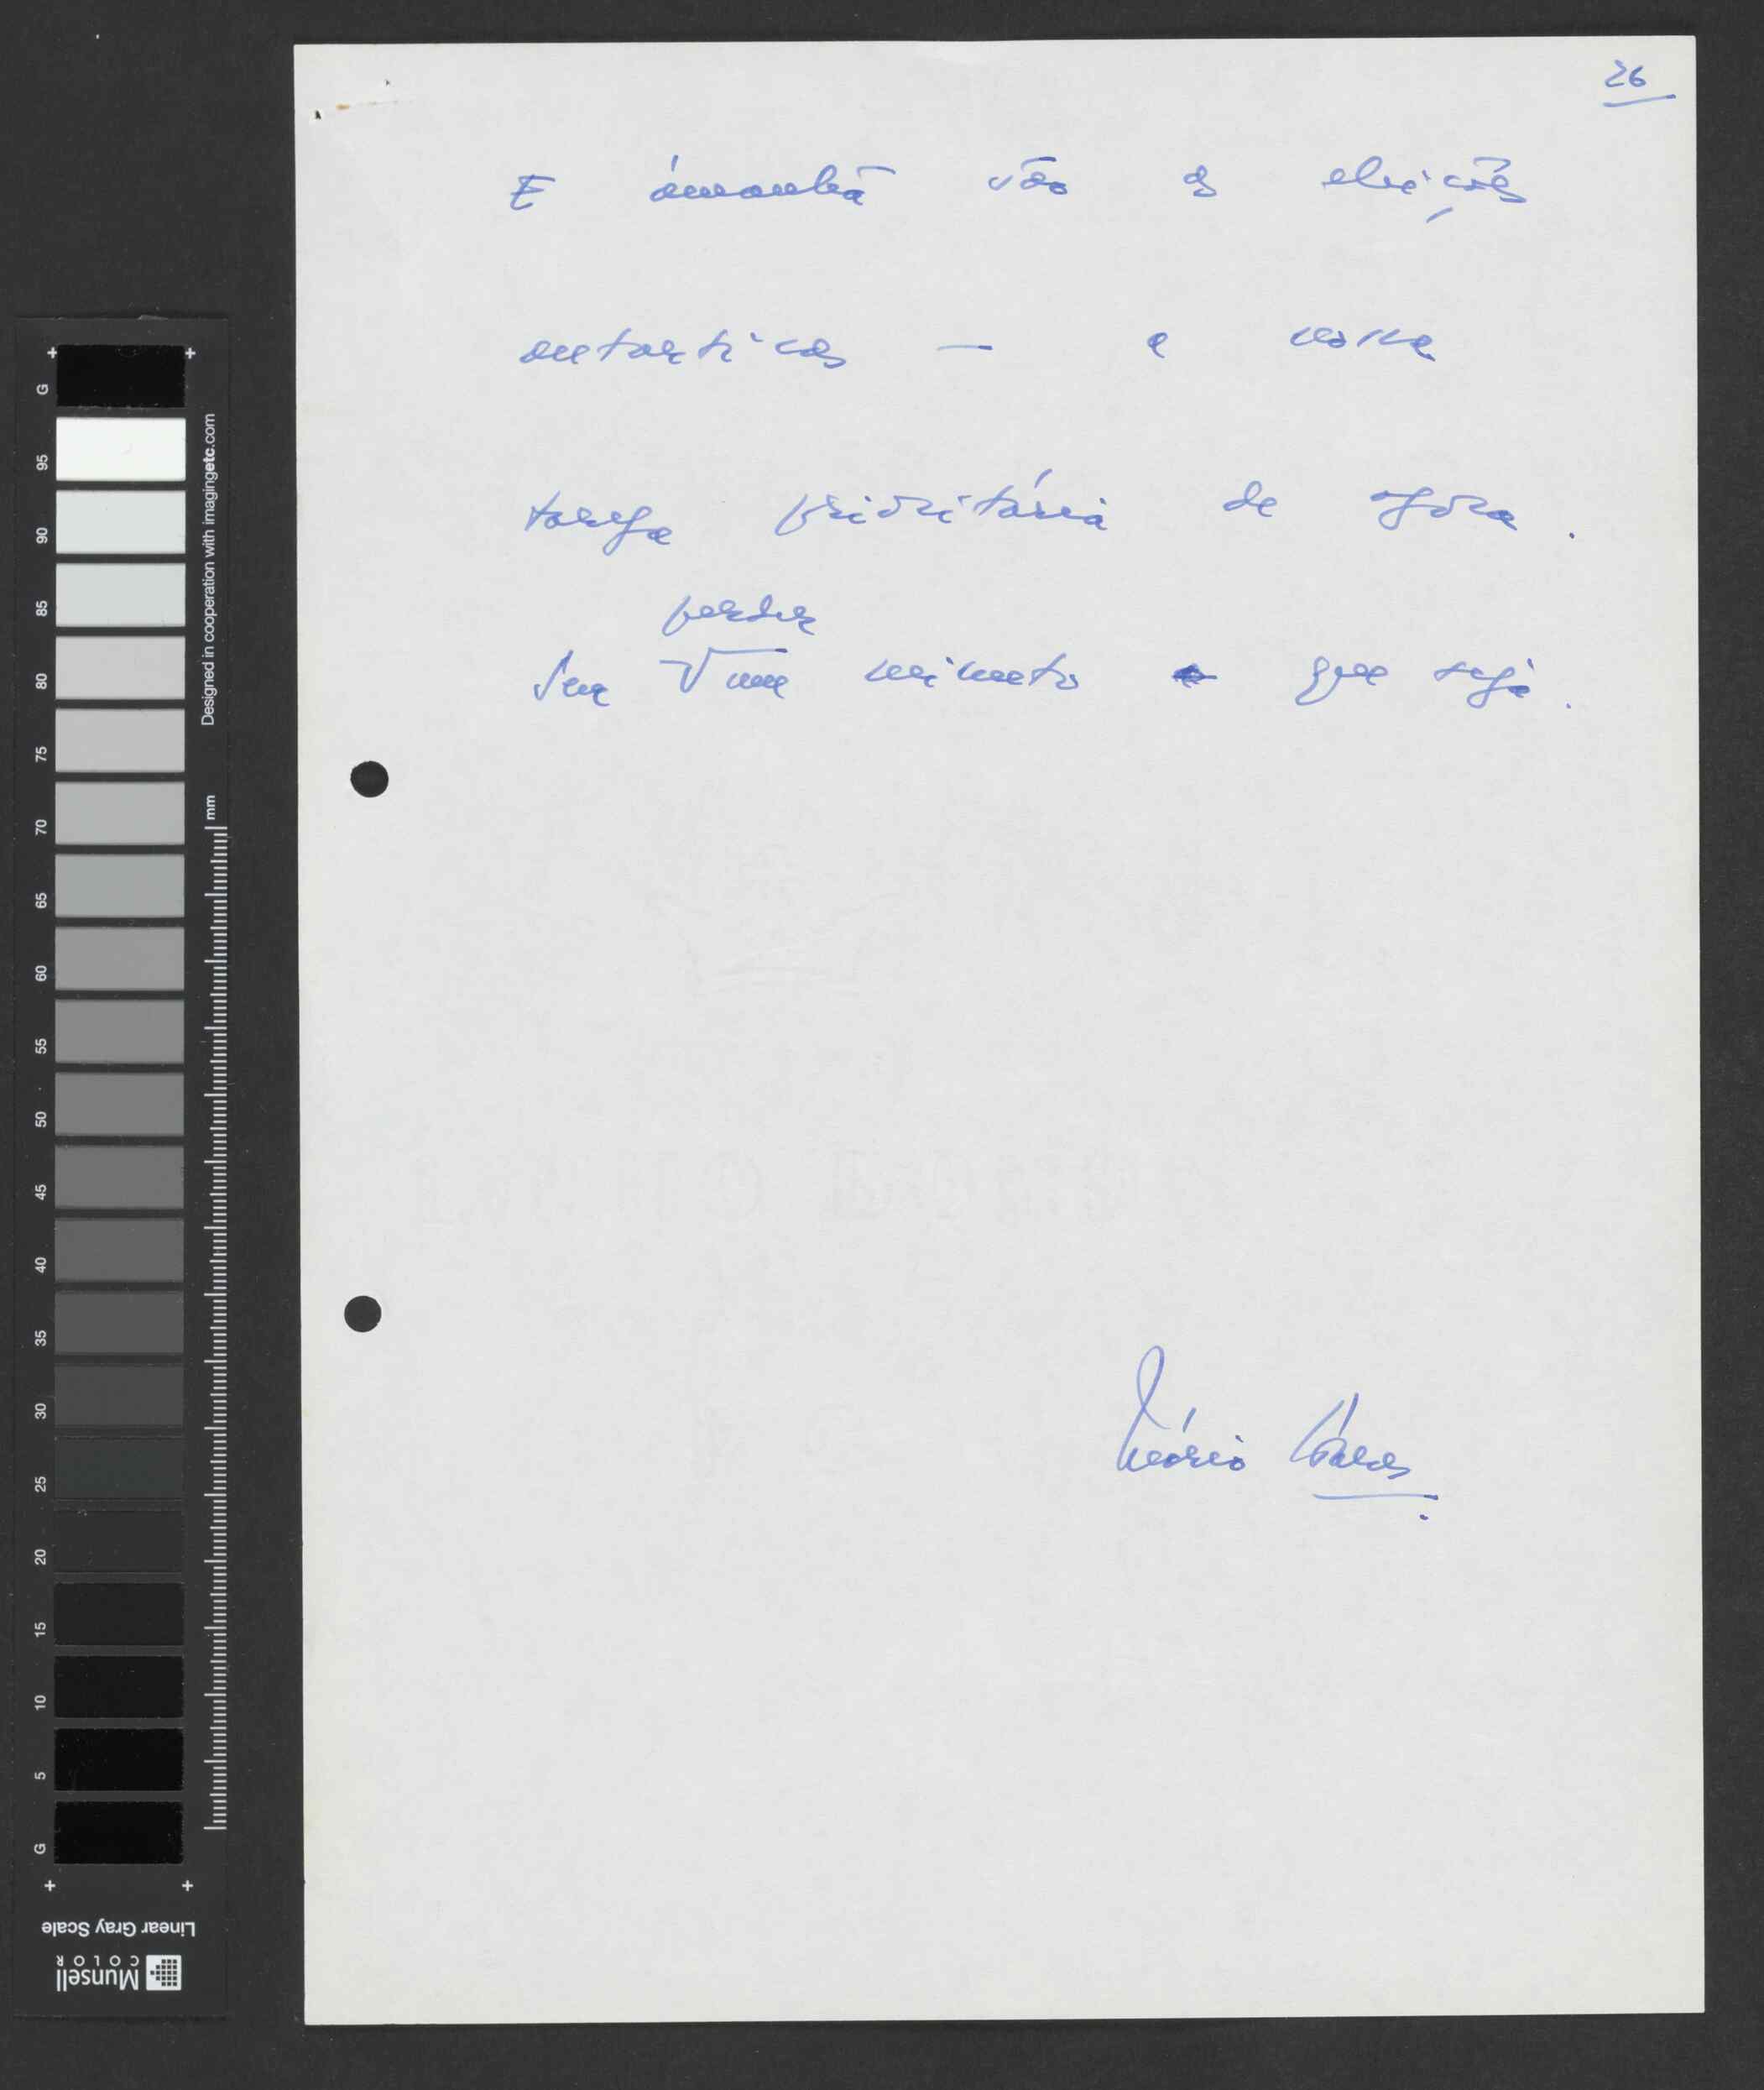 26
E ámanhã vão as eleições
autarticas — a nossa
tarefa prioritária de agora.
perder
Sem √ um minuto que seja.
Mário Soares
G
95
90
85
80
75
70
65
60
55
50
45
40
35
30
25
20
15
10
5
G
Designed in cooperation with imagingetc.com
mm
Linear Gray Scale
Munsell
COLOR